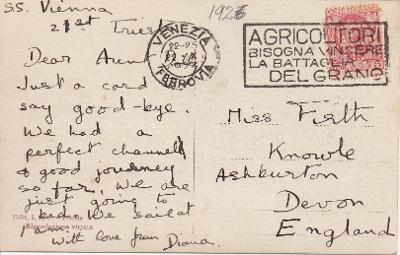 SS. Vienna
21st Trieste
1926
Dear Aunt
Just a card
say good-bye.
We had a
perfect channel
& good journey
so far. We are
just going to
bed. We sail at
1 am.
With love from Diana.
VENEZIA
FERROVIA
AGRICOLTORI
BISOGNA VINCERE
LA BATTAGLIA
DEL GRANO
Miss Firth
Knowle
Ashburton
Devon
England
Riproduzione vietata